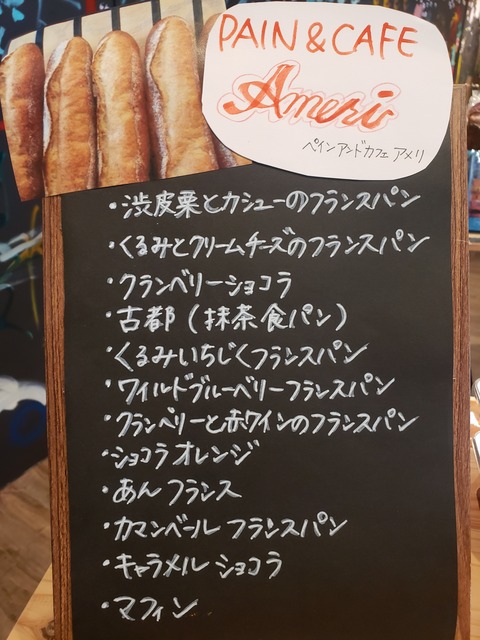 PAIN & CAFE
Ameri
ペインアンドカフェ アメリ
・渋皮栗とカシューのフランスパン
・くるみとクリームチーズのフランスパン
・クランベリーショコラ
・古都（抹茶食パン）
・くるみいちじくフランスパン
・ワイルドブルーベリーフランスパン
・クランベリーと赤ワインのフランスパン
・ショコラオレンジ
・あんフランス
・カマンベール フランスパン
・キャラメル ショコラ
・マフィン